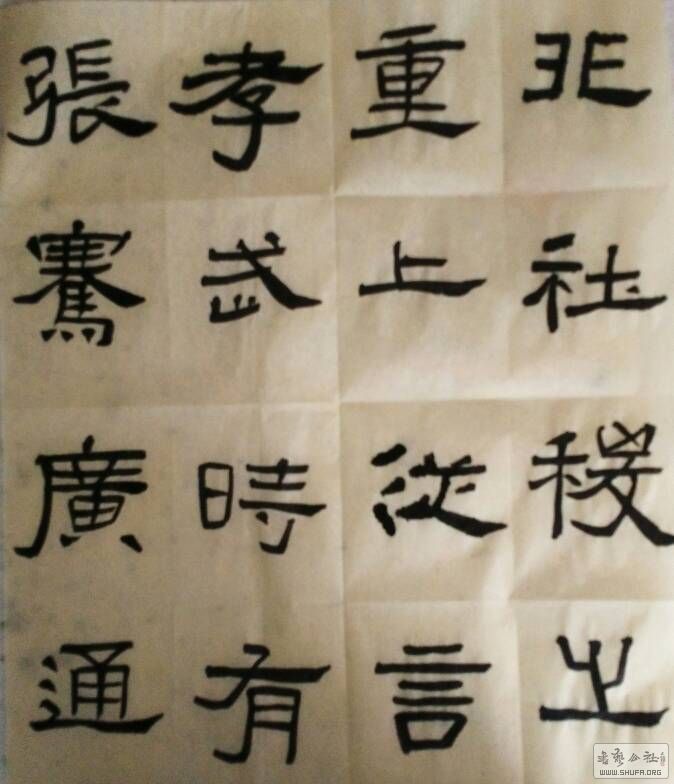 非社稷之
重上從言
孝武時有
張騫廣通
WWW.SHUFA.ORG